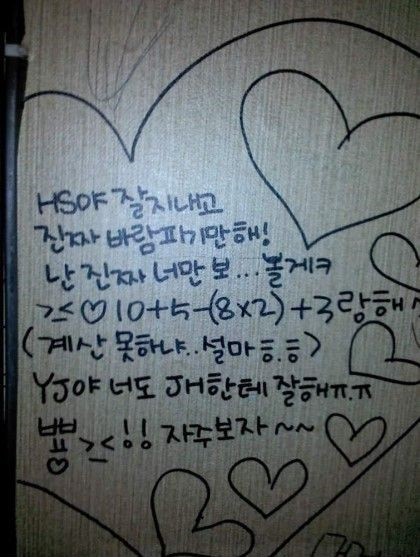 HS야 잘지내고
진짜 바람피기만해!
난 진짜 너만 보...볼게ㅋ
>≤♡10+5-(8x2)+3랑해
(계산 못하냐..설마ㅎ.ㅎ)
YJ야 너도 JH한테 잘해ㅠ.ㅠ
뾰♡>≤!! 자주보자~~